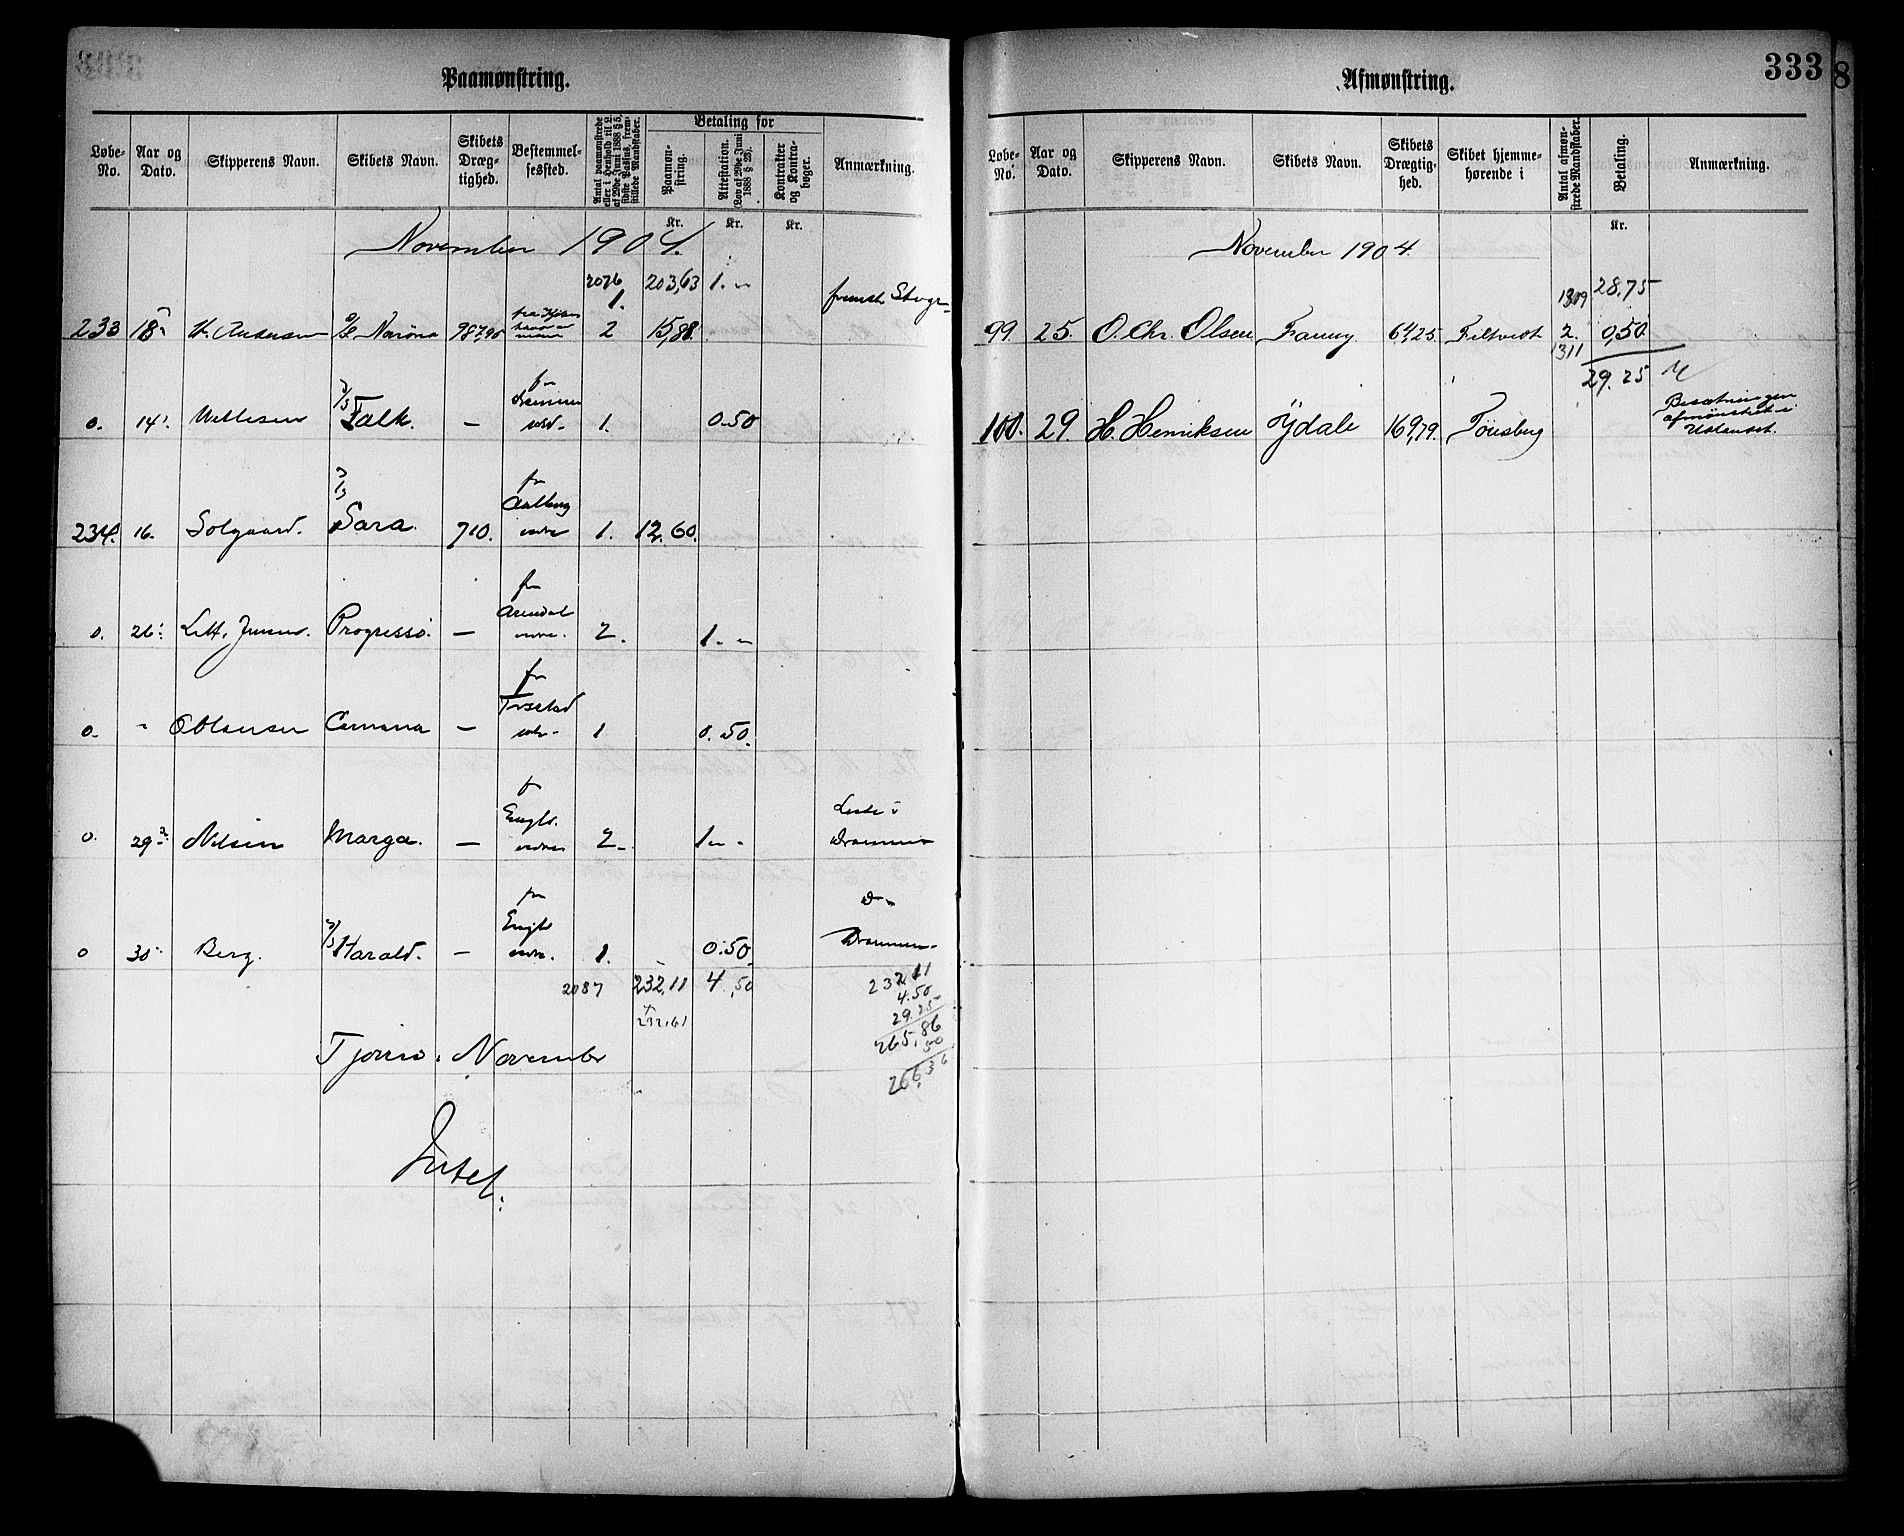 Paamønstring.
Løbe-No.
Aar og Dato.
Skipperens Navn.
Skibets Navn.
Skibets Dræg-tighed.
Bestemmel-sessted.
Antal paamønstrede eller i Henhold til L. af 29de Juni 1888 § 5, sidste Passus, frem-stillede Mandskaber.
Betaling for
Paamøn-string.
Attestation. (Lov af 29de Juni 1888 § 23).
Kontrakter og Kontra-bøger.
Anmærkning.
Kr. Kr. Kr.
November 1904.
2076 203,63 1.-
1.
233 18 H. Andersen Norøna 987,90 2 15,88.
0. 14 Willesen D/S Falk. - fr Drammen 1. 0.50
234. 16. Solgaard. D/S Sara. 710. fr Aalborg 1. 12.60.
0. 26. L. M. Jensen. Progresso. - fr Arendal 2. 1.-
0. " Carmona - fr 1 0.50.
0. 29 Nilsen Marga. - fr Engld. 2 1- Drammen
0 30 Berg. D/S Harald. - fr Engld 1. 0.50 Drammen
2087 232,11 4,50
232,61
232,11
4.50
29.25
265,86
50
266,36
Tjømø. November
Intet.
Afmønstring.
333
8
Løbe-No.
Aar og Dato.
Skipperens Navn.
Skibets Navn.
Skibets Drægtig-hed.
Skibet hjemme-hørende i
Antal afmøn-strede Mandskaber.
Betaling.
Anmærkning.
Kr.
November 1904.
1309 28,75
99. 25. O. Chr. Olsen Fanny 64,25 Filtvedt 2. 0,50
1311
29.25
100. 29. H. Henriksen Ydale 169,79. Tønsberg Besætningen afmønstret i Udlandet.